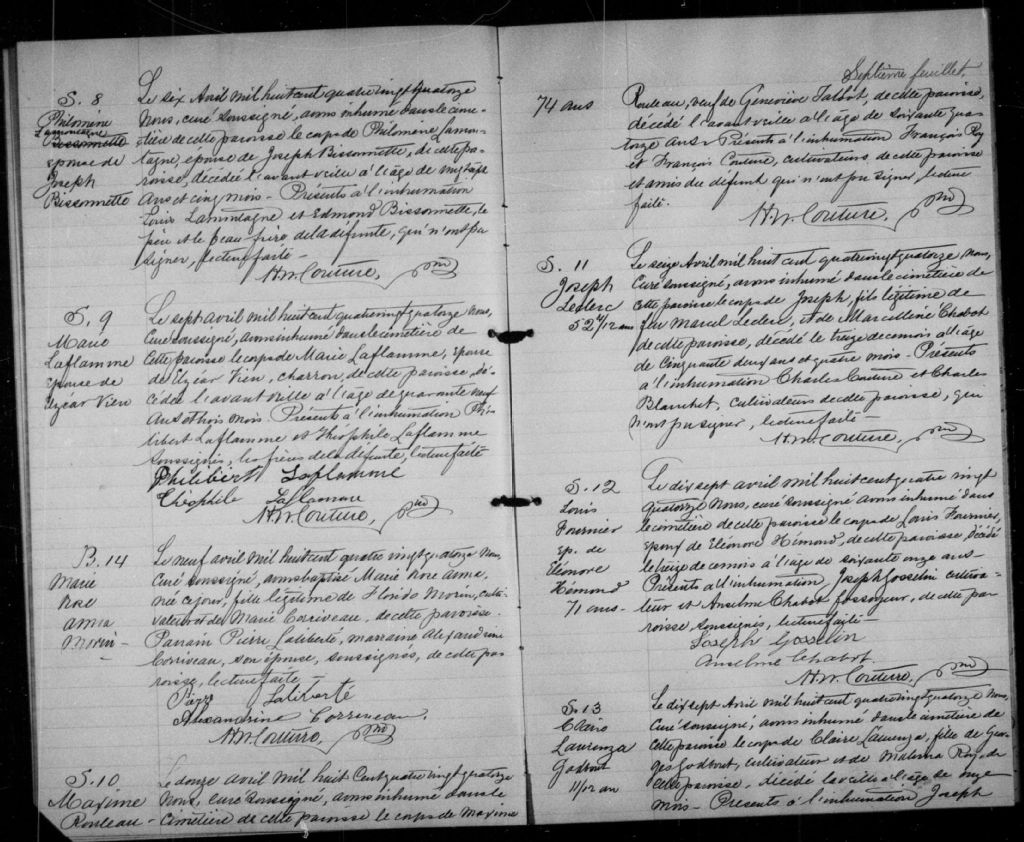 S. 8
Philomène
Lamontagne
Bissonnette
épouse de
Joseph
Bissonnette
Le six Avril mil huit cent quatre vingt quatorze
Nous, curé soussigné, avons inhumé dans le cime-
tière de cette paroisse le corps de Philomène Lamon-
tagne, épouse de Joseph Bissonnette, de cette pa-
roisse, décédée l'avant veille à l'âge de vingt sept
ans et cinq mois - Présents à l'inhumation
Louis Lamontagne et Edmond Bissonnette, le
père et le beau frère de la défunte, qui n'ont pu
signer, lecture faite -
H. W. Couture, Ptre
S. 9
Marie
Laflamme
épouse de
Elzéar Vien
Le sept avril mil huit cent quatre vingt quatorze Nous,
Curé soussigné, avons inhumé dans le cimetière de
cette paroisse le corps de Marie Laflamme, épouse
de Elzéar Vien, charron, de cette paroisse, dé-
cédée l'avant veille à l'âge de quarante neuf
ans et trois mois. Présents à l'inhumation Phi-
libert Laflamme et Théophile Laflamme
soussignés, les frères de la défunte, lecture faite
Philibert Laflamme
Théophile Laflamme
H. W. Couture, Ptre
B. 14
Marie
Rose
Anna
Morin -
Le neuf avril mil huit cent quatre vingt quatorze Nous
Curé soussigné, avons baptisé Marie Rose Anna,
née ce jour, fille légitime de Florido Morin, culti-
vateur et de Marie Corriveau, de cette paroisse.
Parrain Pierre Laliberté, marraine Alexandrine
Corriveau, son épouse, soussignés, de cette pa-
roisse, lecture faite
Pierre Laliberté
Alexandrine Corriveau.
H. W. Couture, Ptre
S. 10
Maxime
Rouleau -
Le douze avril mil huit cent quatre vingt quatorze
Nous, curé soussigné, avons inhumé dans le
cimetière de cette paroisse le corps de Maxime
Septième feuillet.
74 ans
Rouleau, veuf de Geneviève Talbot, de cette paroisse,
décédé l'avant veille à l'âge de soixante qua-
torze ans - Présents à l'inhumation François Roy
et François Couture, cultivateurs, de cette paroisse
et amis du défunt qui n'ont pu signer, lecture
faite.
H. W. Couture, Ptre
S. 11
Joseph
Leclerc
52 4/12 ans
Le seize Avril mil huit cent quatre vingt quatorze Nous,
Curé soussigné, avons inhumé dans le cimetière de
cette paroisse le corps de Joseph, fils légitime de
feu Marcel Leclerc, et de Marcelline Chabot
de cette paroisse, décédé le treize de ce mois à l'âge
de Cinquante deux ans et quatre mois - Présents
à l'inhumation Charles Couture et Charles
Blanchet, cultivateurs de cette paroisse, qui
n'ont pu signer, lecture faite -
H. W. Couture, Ptre
S. 12
Louis
Fournier
Ep. de
Eléonore
Hémond
71 ans -
Le dix sept avril mil huit cent quatre vingt
quatorze Nous, curé soussigné avons inhumé dans
le cimetière de cette paroisse le corps de Louis Fournier,
époux de Eléonore Hémond, de cette paroisse, décédé
le treize de ce mois à l'âge de soixante onze ans -
Présents à l'inhumation, Joseph Gosselin cultiva-
teur et Anselme Chabot fossoyeur, de cette pa-
roisse soussignés, lecture faite -
Joseph Gosselin
Anselme Chabot.
H. W. Couture, Ptre
S. 13
Claire
Laurenza
Godbout
11/12 an
Le dix sept Avril mil huit cent quatre vingt quatorze Nous,
Curé soussigné, avons inhumé dans le cimetière de
cette paroisse le corps de Claire Laurenza, fille de Geor-
ges Godbout, cultivateur et de Malvina Roy, de
cette paroisse, décédée la veille à l'âge de onze
mois - Présents à l'inhumation Joseph